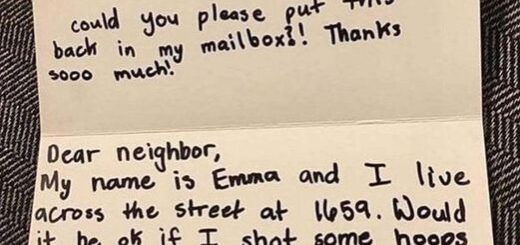 could you please put this
back in my mailbox?! Thanks
sooo much!
Dear neighbor,
My name is Emma and I live
across the street at 1659. Would
it be ok if I shot some hoops